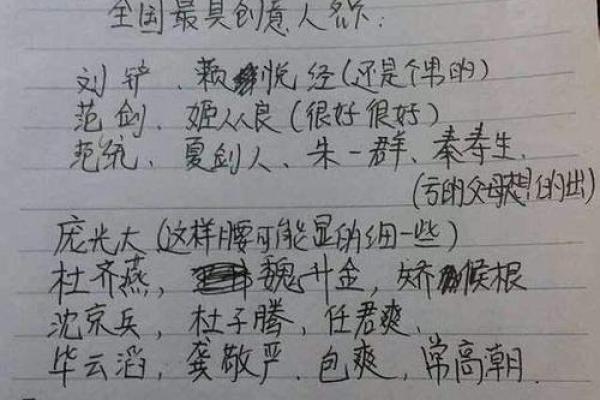 全国最具创意人名:
刘铲、赖悦经(还是个男的)
范剑、姬从良(很好很好)
范统、夏剑人、朱一群、秦寿生、
(亏的父母想的出)
庞光大(这样腰可能显的细一些)
杜齐燕,魏升金,娇候根
沈京兵,杜子腾,任君爽,
毕云滔,龚敬严,包爽,常高朝.